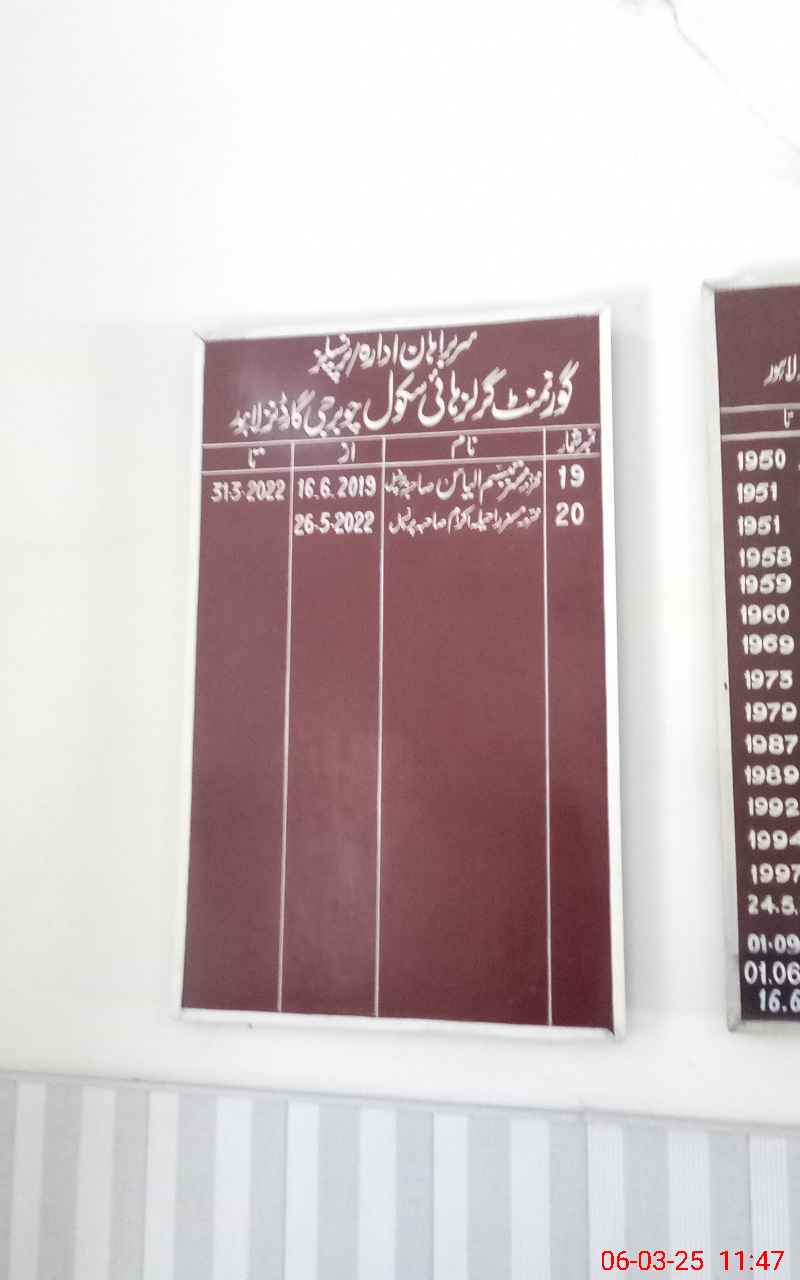 سربراہان ادارہ/پرنسپلز
گورنمنٹ گرلز ہائی سکول چوبرجی گارڈنز لاہور
نمبر شمار نام از تا
19 محترمہ مسز تبسم الیاس صاحبہ پرنسپل 16.6.2019 31-3-2022
20 محترمہ مسز راحیلہ اکرام صاحبہ پرنسپل 26-5-2022
لاہور
تا
1950
1951
1951
1958
1959
1960
1969
1973
1979
1987
1989
1992
1994
1997
24.5.
01.09
01.06
16.6
06-03-25 11:47